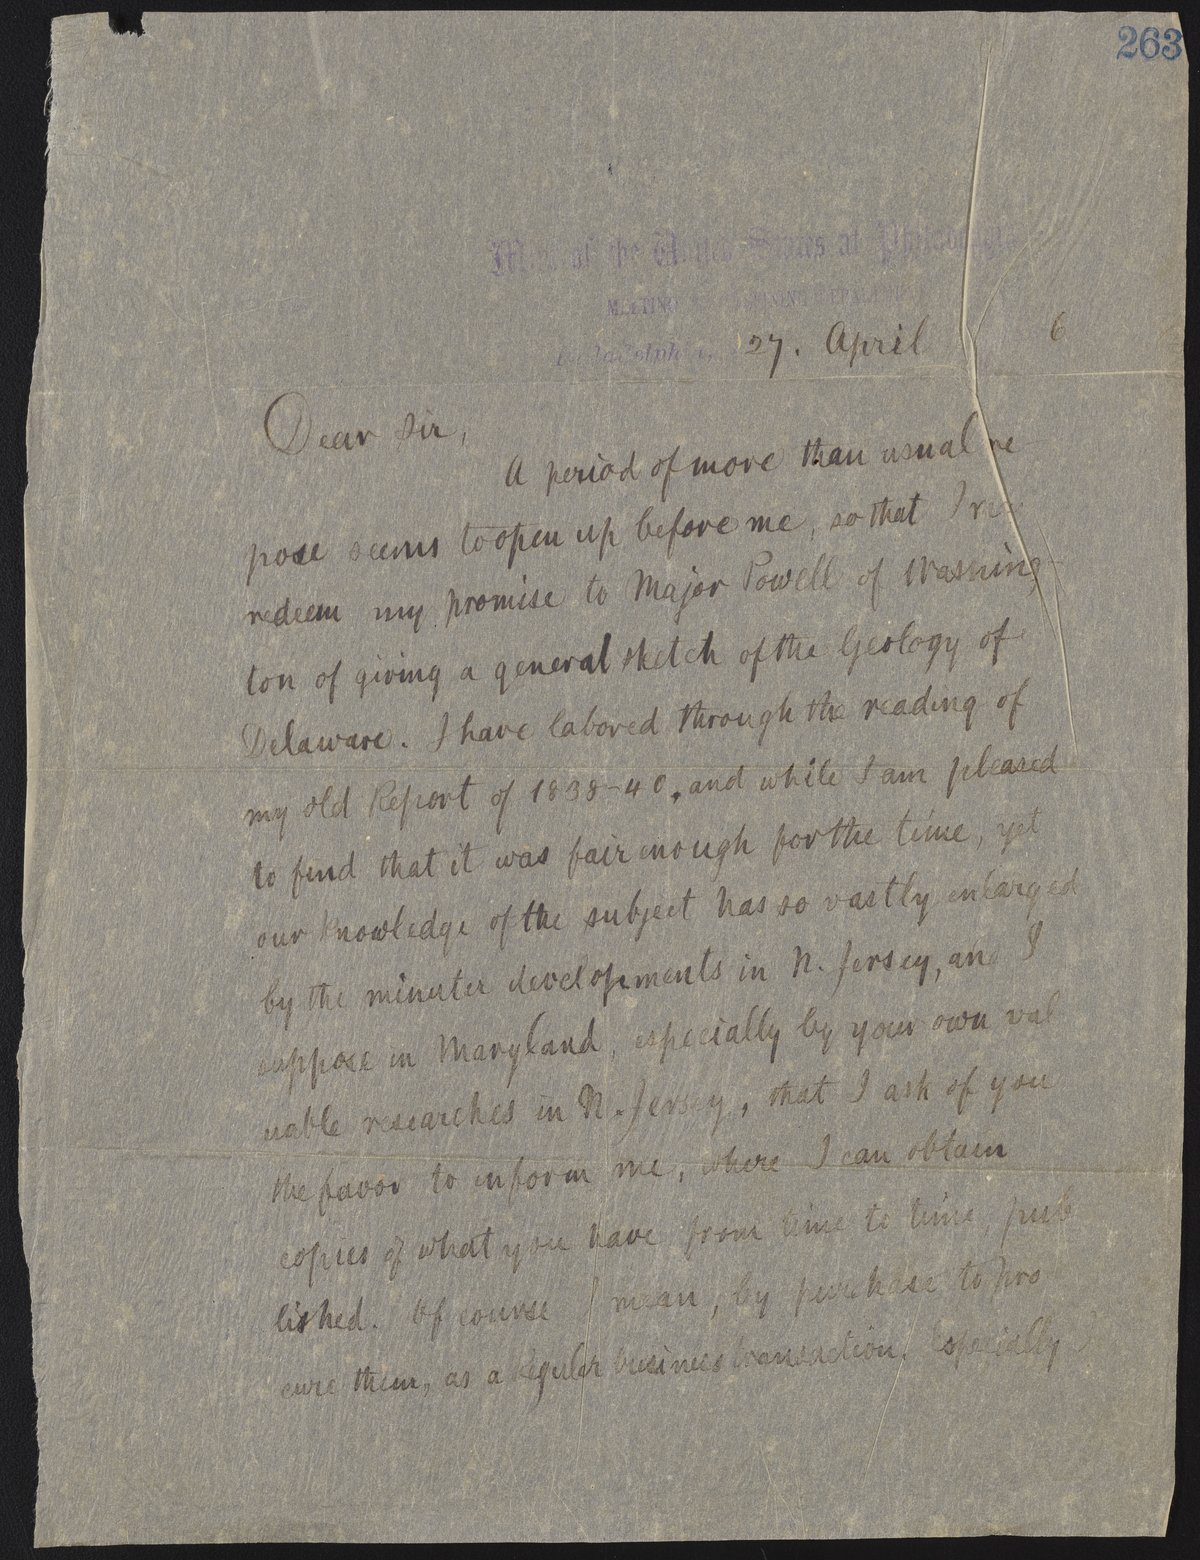 263
Mint of the United States at Philadelphia
MELTING REFINING DEPARTMENT
Philadelphia, 27. April 6
Dear Sir,
A period of more than usual re-
pose seems to open up before me, so that I
redeem my promise to Major Powell of Washing-
ton of giving a general sketch of the Geology of
Delaware. I have labored through the reading of
my old Report of 1838-40, and while I am pleased
to find that it was fair enough for the time, yet
our knowledge of the subject has so vastly enlarged
by the minuter developments in N. Jersey, and I
suppose in Maryland, especially by your own val
uable researches in N. Jersey, that I ask of you
the favor to inform me, where I can obtain
copies of what you have from time to time, pub
lished. Of course I mean, by purchase to pro
cure them, as a regular business transaction. Especially